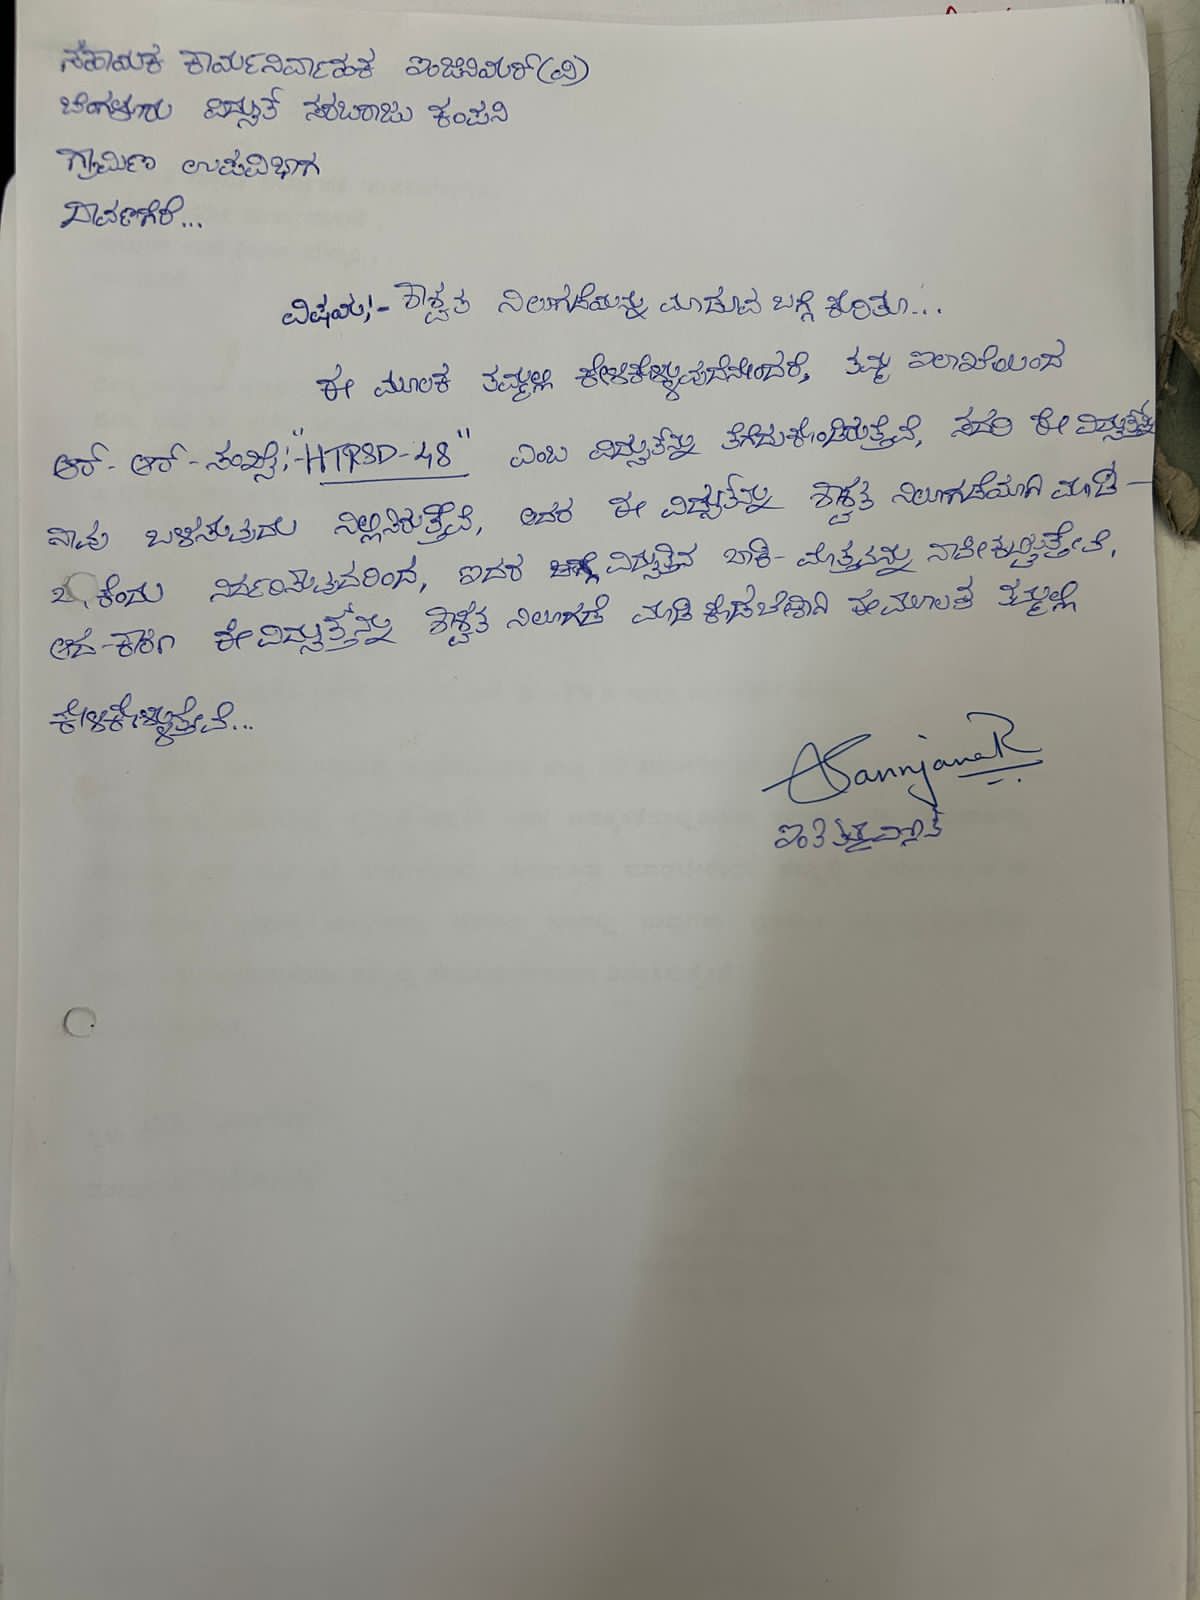 ಸಹಾಯಕ ಕಾರ್ಯನಿರ್ವಾಹಕ ಇಂಜಿನಿಯರ್(ವಿ)
ಬೆಂಗಳೂರು ವಿದ್ಯುತ್ ಸರಬರಾಜು ಕಂಪನಿ
ಗ್ರಾಮೀಣ ಉಪವಿಭಾಗ
ದಾವಣಗೆರೆ...
ವಿಷಯ:- ಶಾಶ್ವತ ನಿಲುಗಡೆಯನ್ನು ಮಾಡುವ ಬಗ್ಗೆ ಕುರಿತು...
ಈ ಮೂಲಕ ತಮ್ಮಲ್ಲಿ ಕೇಳಿಕೊಳ್ಳುವುದೇನೆಂದರೆ, ತಮ್ಮ ಇಲಾಖೆಯಿಂದ
ಆರ್-ಆರ್-ಸಂಖ್ಯೆ:-"HTRSD-48" ಎಂಬ ವಿದ್ಯುತನ್ನು ತೆಗೆದುಕೊಂಡಿರುತ್ತೇವೆ, ಸದರಿ ಈ ವಿದ್ಯುತನ್ನು
ನಾವು ಬಳಸುವುದು ನಿಲ್ಲಿಸಿರುತ್ತೇವೆ, ಆದರೆ ಈ ವಿದ್ಯುತನ್ನು ಶಾಶ್ವತ ನಿಲುಗಡೆಯಾಗಿ ಮಾಡಿ-
ಕೆಂದು ನಿರ್ಧರಿಸಿರುವುದರಿಂದ, ಇದರ ವಿದ್ಯುತ್ತಿನ ಬಾಕಿ-ಮೊತ್ತವನ್ನು ನಾವೇ ಕಟ್ಟುತ್ತೇವೆ,
ಆದ-ಕಾರಣ ಈ ವಿದ್ಯುತ್ತನ್ನು ಶಾಶ್ವತ ನಿಲುಗಡೆ ಮಾಡಿ ಕೊಡಬೇಕಾಗಿ ಈ ಮೂಲಕ ತಮ್ಮಲ್ಲಿ
ಕೇಳಿಕೊಳ್ಳುತ್ತೇವೆ...
Sannjana R
ಇಂತಿ ತಮ್ಮ ವಿಶ್ವಾಸಿ